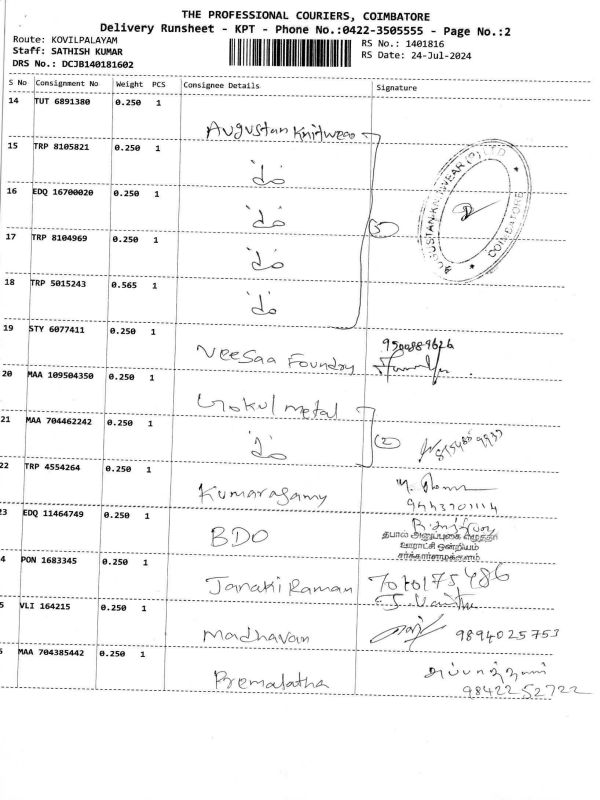 THE PROFESSIONAL COURIERS, COIMBATORE
Delivery Runsheet - KPT - Phone No.:0422-3505555 - Page No.:2
Route: KOVILPALAYAM
RS No.: 1401816
Staff: SATHISH KUMAR
RS Date: 24-Jul-2024
DRS No.: DCJB140181602
S No Consignment No Weight PCS Consignee Details Signature
14 TUT 6891380 0.250 1
Augustan Knitwear
15 TRP 8105821 0.250 1
16 EDQ 16700020 0.250 1
AUGUSTAN KNITWEAR (P) LTD
COIMBATORE
17 TRP 8104969 0.250 1
5
18 TRP 5015243 0.565 1
19 STY 6077411 0.250 1
Veesaa Foundry 9500889626
20 MAA 109504350 0.250 1
Gokul metal
21 MAA 704462242 0.250 1
2
22 TRP 4554264 0.250 1
Kumarasamy
9443701114
23 EDQ 11464749 0.250 1
BDO
தபால் அனுப்புகை எழுத்தர்
ஊராட்சி ஒன்றியம்
சர்க்கார்சாமக்குளம்
4 PON 1683345 0.250 1
Janaki Raman 7010175486
5 VLI 164215 0.250 1
Madhavan 9894025753
6 MAA 704385442 0.250 1
Premalatha
9842252722